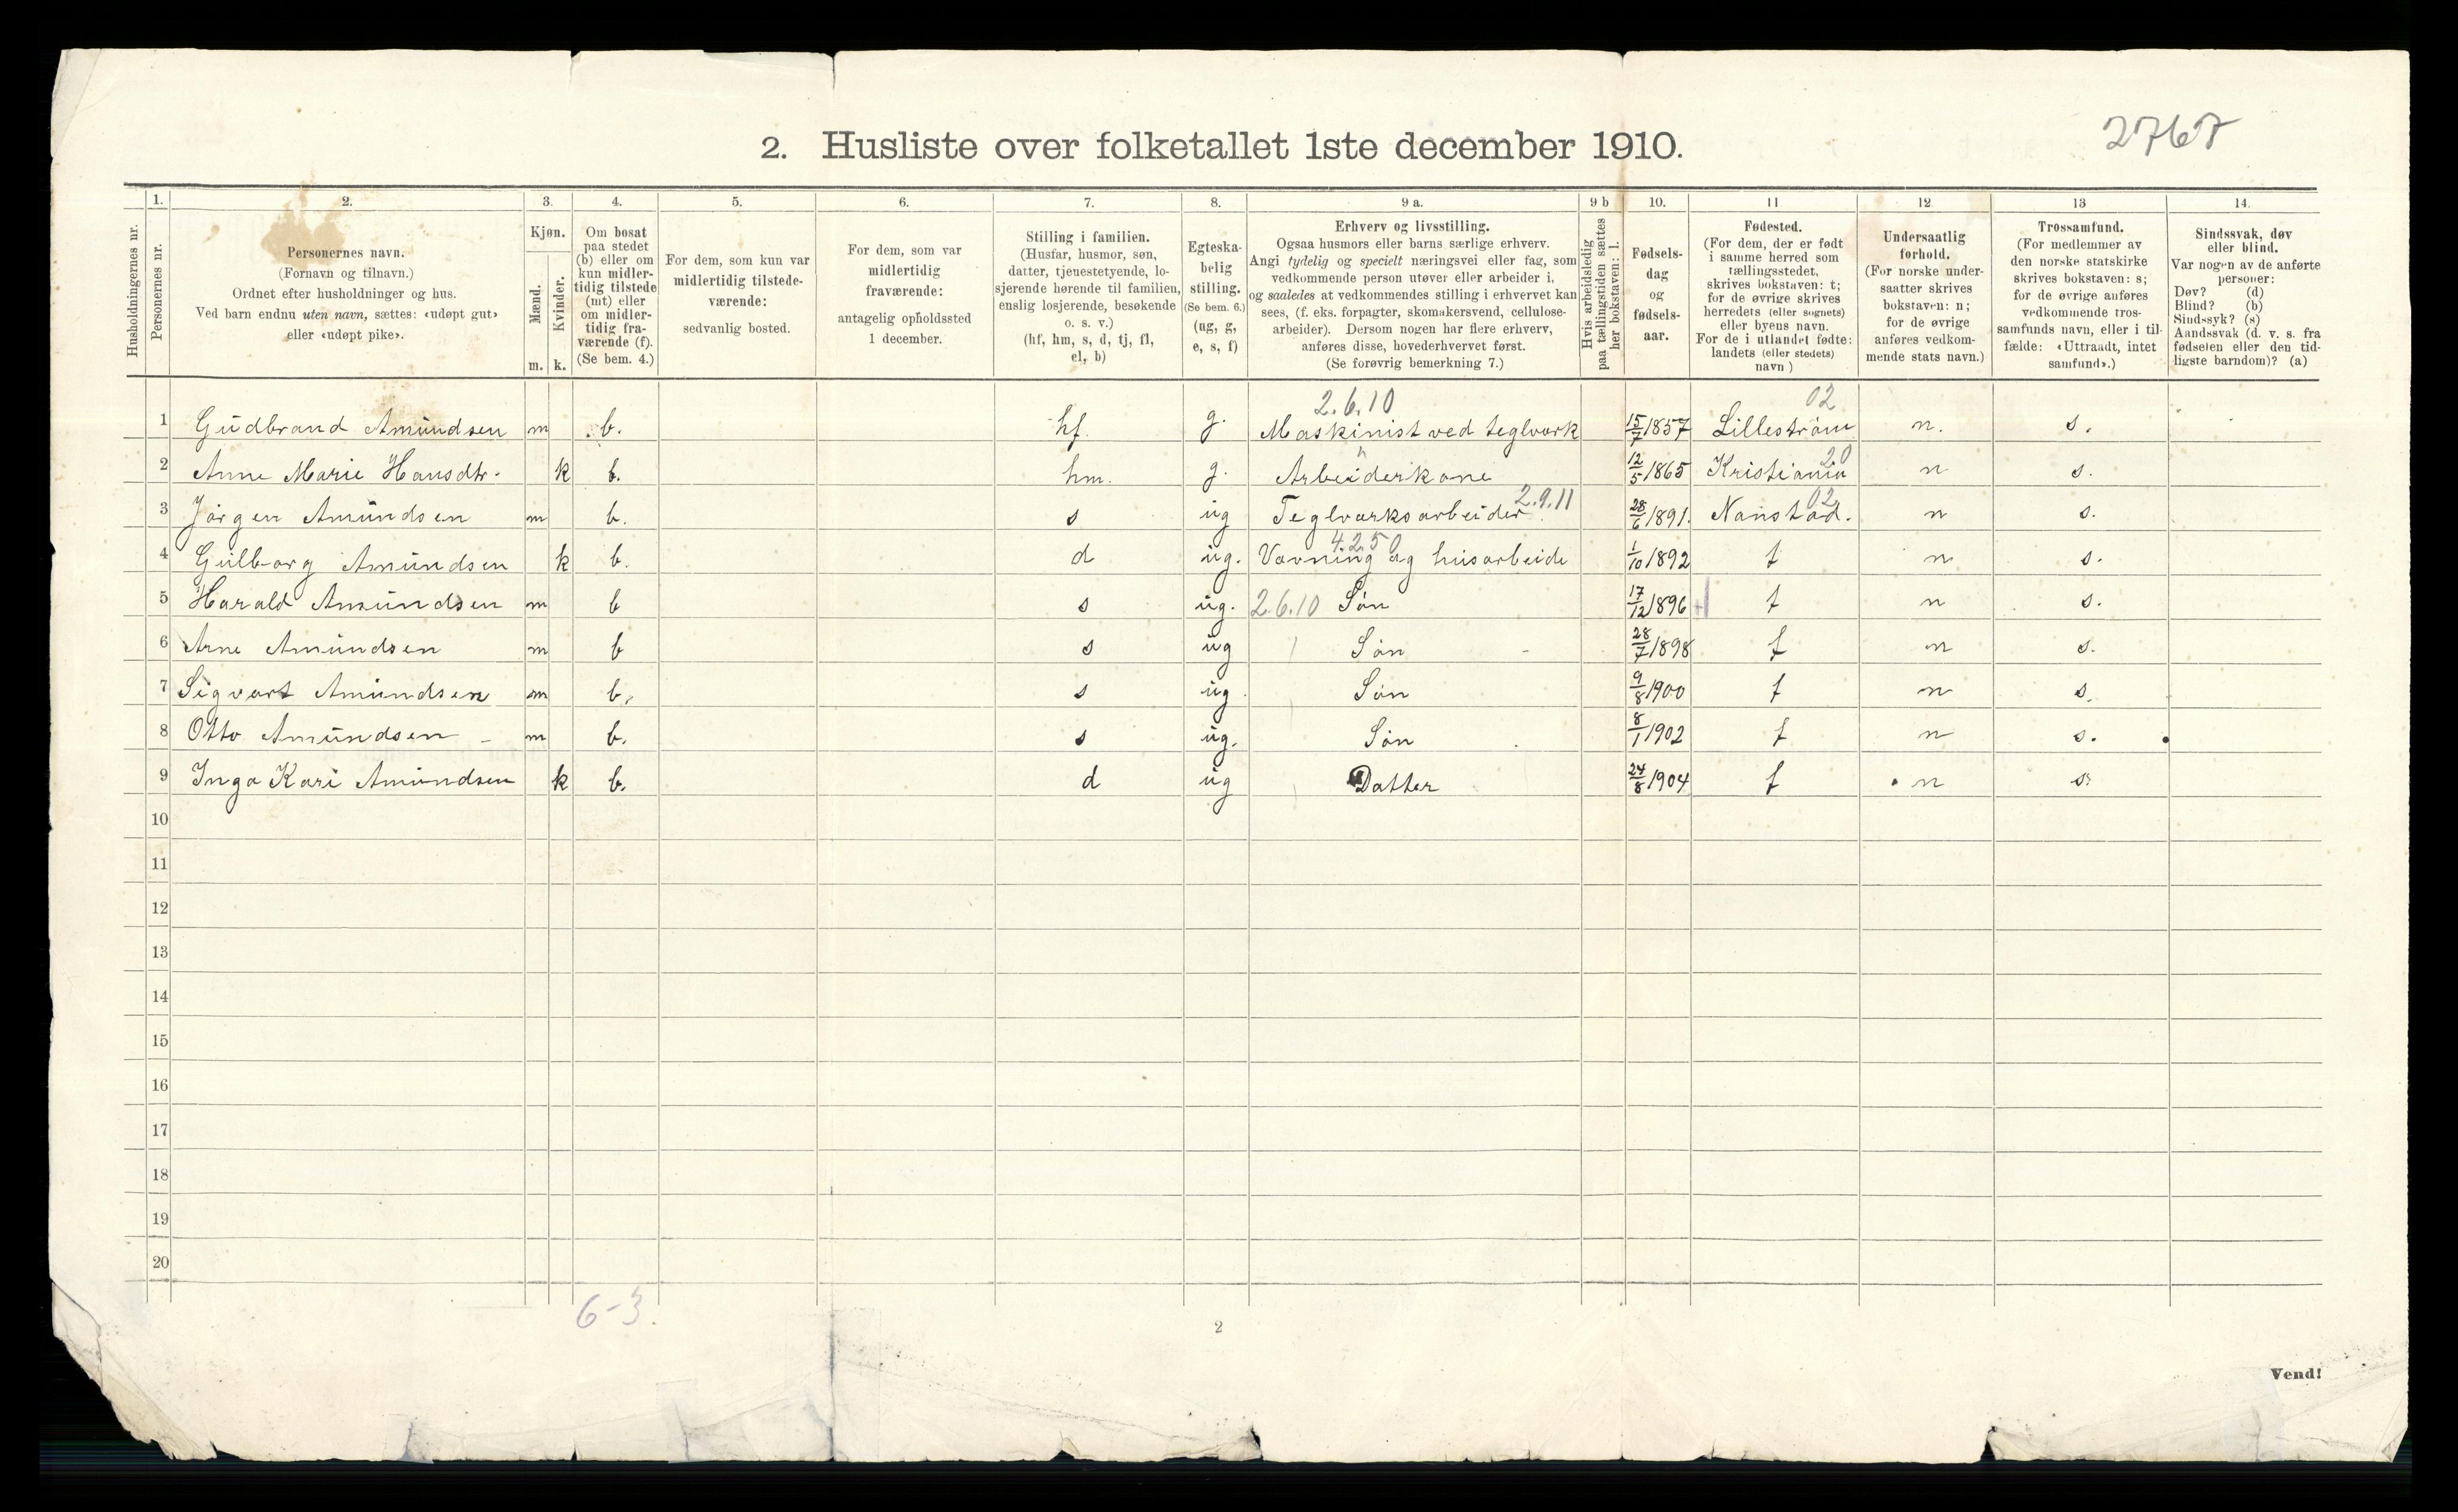 2767
2. Husliste over folketallet 1ste december 1910.
Husholdningernes nr.
1. Personernes nr.
2. Personernes navn.
(Fornavn og tilnavn.)
Ordnet efter husholdninger og hus.
Ved barn endnu uten navn, sættes: «udøpt gut»
eller «udøpt pike».
3. Kjøn.
Mænd. m.
Kvinder. k.
4. Om bosat
paa stedet
(b) eller om
kun midler-
tidig tilstede
(mt) eller
om midler-
tidig fra-
værende (f).
(Se bem. 4.)
5. For dem, som kun var
midlertidig tilstede-
værende:
sedvanlig bosted.
6. For dem, som var
midlertidig
fraværende:
antagelig opholdssted
1 december.
7. Stilling i familien.
(Husfar, husmor, søn,
datter, tjenestetyende, lo-
sjerende hørende til familien,
enslig losjerende, besøkende
o. s. v.)
(hf, hm, s, d, tj, fl,
el, b)
8. Egteska-
belig
stilling.
(Se bem. 6.)
(ug, g,
e, s, f)
9 a. Erhverv og livsstilling.
Ogsaa husmors eller barns særlige erhverv.
Angi tydelig og specielt næringsvei eller fag, som
vedkommende person utøver eller arbeider i,
og saaledes at vedkommendes stilling i erhvervet kan
sees, (f. eks. forpagter, skomakersvend, cellulose-
arbeider). Dersom nogen har flere erhverv,
anføres disse, hovederhvervet først.
(Se forøvrig bemerkning 7.)
9 b Hvis arbeidsledig
paa tællingstiden sættes
her bokstaven: l.
10. Fødsels-
dag
og
fødsels-
aar.
11 Fødested.
(For dem, der er født
i samme herred som
tællingsstedet,
skrives bokstaven: t;
for de øvrige skrives
herredets (eller sognets)
eller byens navn.
For de i utlandet fødte:
landets (eller stedets)
navn.)
12. Undersaatlig
forhold.
(For norske under-
saatter skrives
bokstaven: n;
for de øvrige
anføres vedkom-
mende stats navn.)
13 Trossamfund.
(For medlemmer av
den norske statskirke
skrives bokstaven: s;
for de øvrige anføres
vedkommende tros-
samfunds navn, eller i til-
fælde: «Uttraadt, intet
samfund».)
14. Sindssvak, døv
eller blind.
Var nogen av de anførte
personer:
Døv? (d)
Blind? (b)
Sindssyk? (s)
Aandssvak (d. v. s. fra
fødselen eller den tid-
ligste barndom)? (a)
2.6.10 02
1 Gudbrand Amundsen m b. hf. g. Maskinist ved teglverk 15/7 1857 Lillestrøm n. s.
" 20
2 Anne Marie Hansdtr. k b. hm. g. Arbeiderkone 12/5 1865 Kristiania n s.
2.9.11 02
3 Jørgen Amundsen m b. s ug Teglverksarbeider 28/6 1891. Nanstad. n s.
4.2.5 0
4 Gulborg Amundsen k b. d ug. Vævning og husarbeide 1/10 1892 t n s.
5 Harald Amundsen m b s ug. 2.6.10 Søn 17/12 1896 t n s.
6 Arne Amundsen m b s ug Søn 28/7 1898 t n s.
7 Sigvart Amundsen m b. s ug Søn 9/8 1900 t n s.
8 Otto Amundsen m b. s ug. Søn 8/1 1902 t n s.
9 Inga Kari Amundsen k b. d ug Datter 24/8 1904 t n s.
10
11
12
13
14
15
16
17
18
19
20
6-3.
2
Vend!